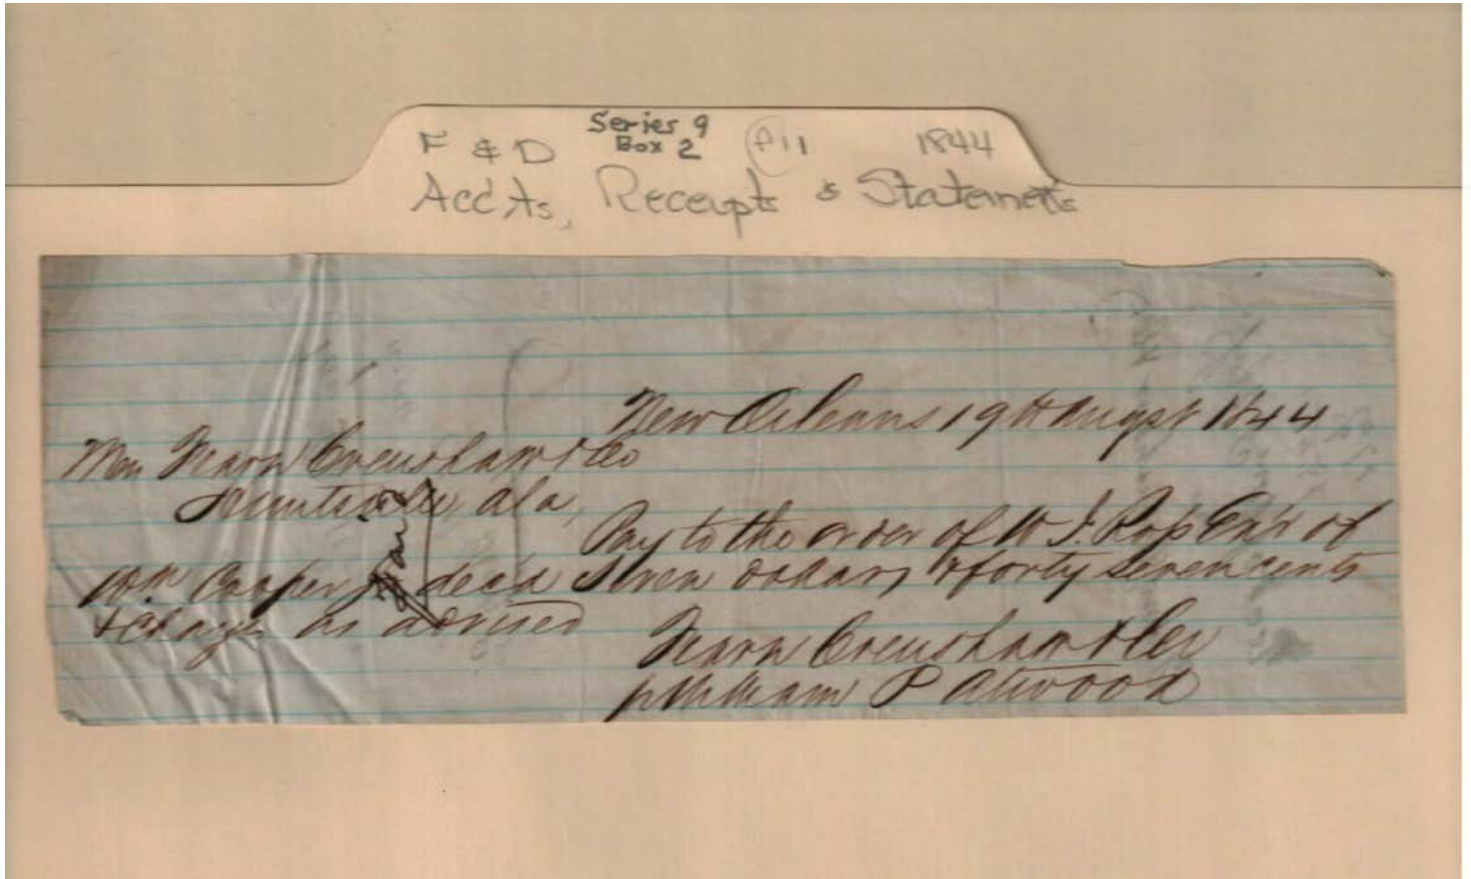 Series 9
F & D Box 2 1844
Acc'ts, Receipts & Statements
New Orleans 19th Augst 1844
Fearn Crenshaw & Co
Huntsville Ala,
Pay to the order of W. J. Ross Exr of
Wm Cooper decd Seven dollars & forty seven cents
& charge as advised
Fearn Crenshaw & Co
p William P Atwood